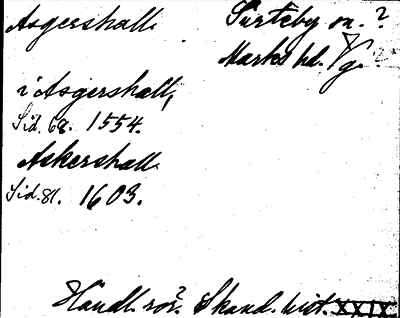 Asgershall. Surteby sn. ?
Marks hd. Vg. ?
i Asgershall,
Sid. 68. 1554.
Askershall
Sid. 81. 1603.
Handl. rör. Skand. hist. XXIX